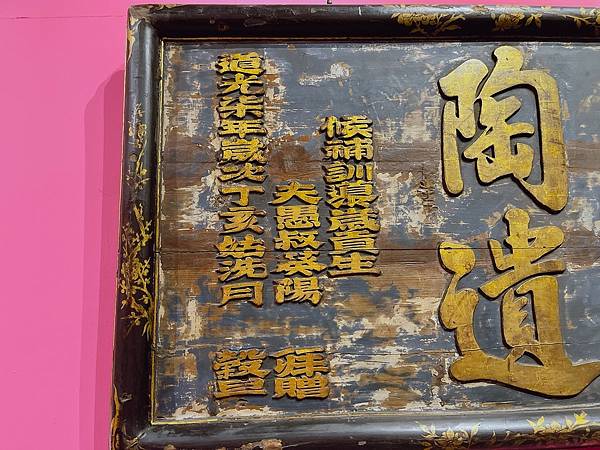 陶遺
候補訓導歲貢生
夫愚叔葵陽 拜贈
道光柒年歲次丁亥姑洗月 穀旦